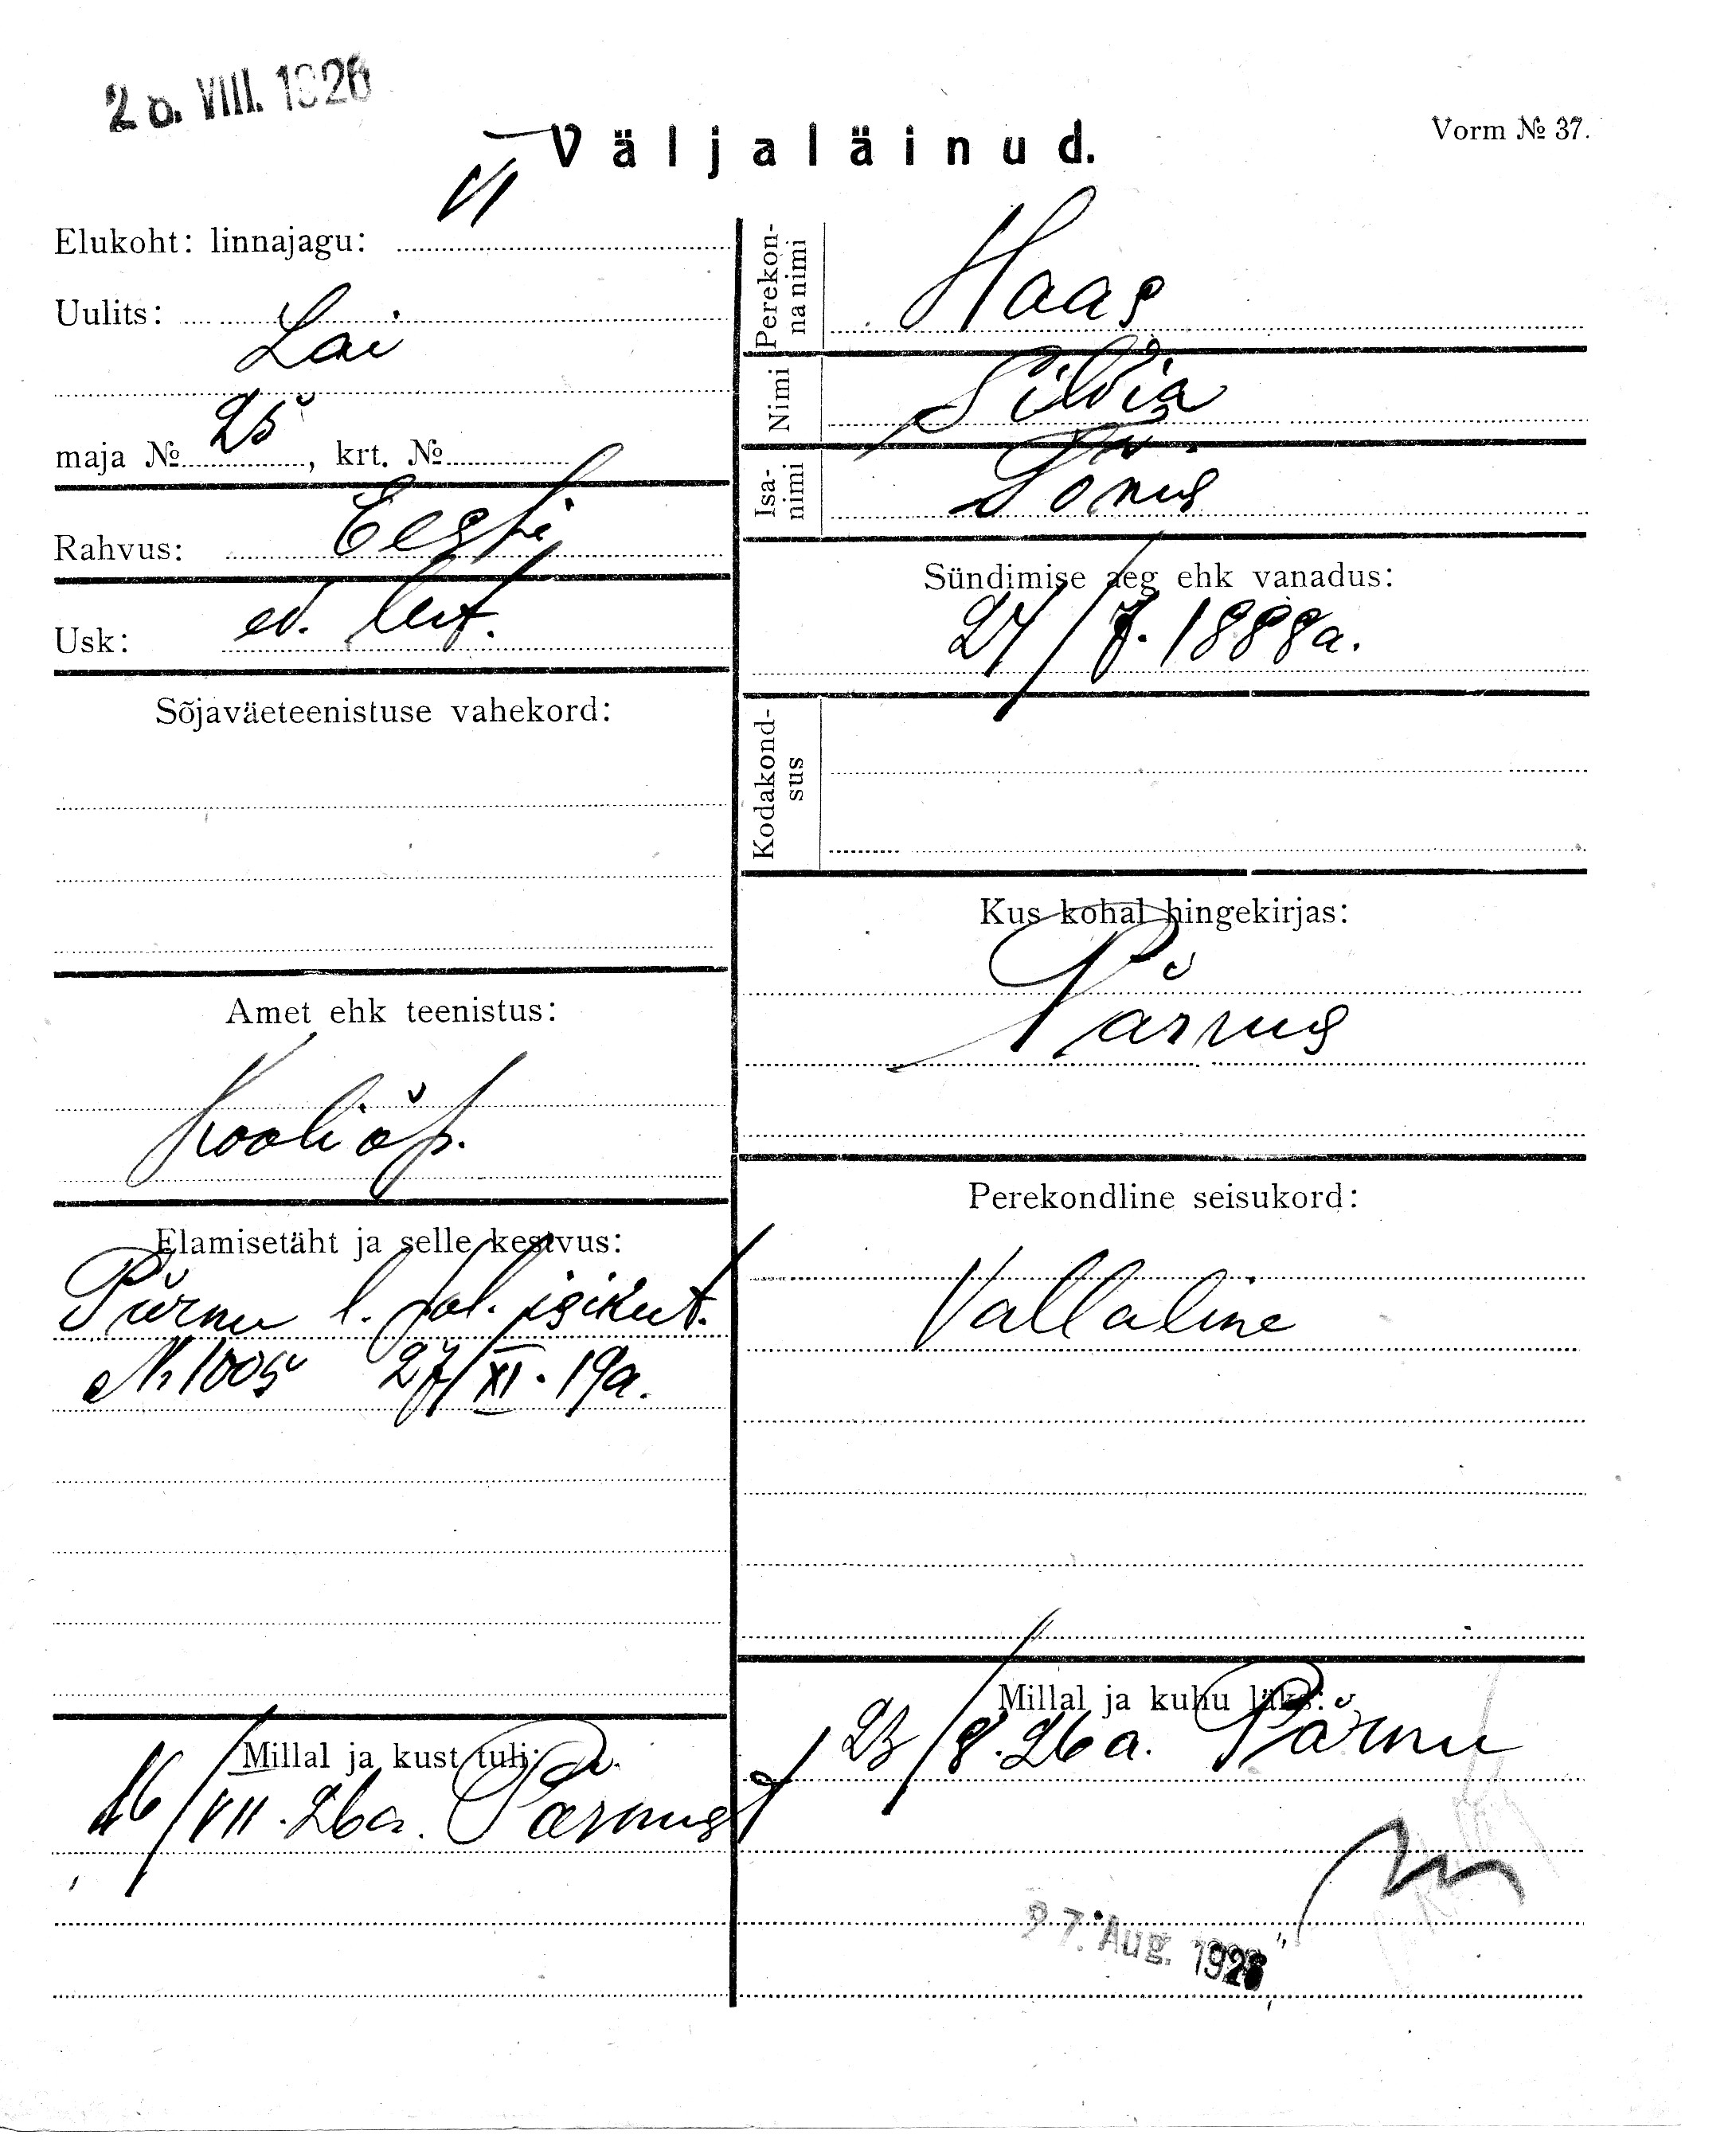 26. VIII. 1926
Väljaläinud.
Vorm № 37.
Elukoht: linnajagu: VI
Uulits: Lai
maja № 25, krt. №
Rahvus: Eesti
Usk: ev. lut.
Sõjaväeteenistuse vahekord:
Amet ehk teenistus:
Kooliõp.
Elamisetäht ja selle kestvus:
Pärnu l. pol. isikut.
Nr 1005 27/XI. 19a.
Millal ja kust tuli:
16/VII. 26a. Pärnust
Perekonnanimi Haas
Nimi Silvia
Isanimi Tõnis
Sündimise aeg ehk vanadus:
24/7. 1888a.
Kodakondsus
Kus kohal hingekirjas:
Pärnus
Perekondline seisukord:
Vallaline
Millal ja kuhu läks:
23/8. 26a. Pärnu
27. Aug. 1926